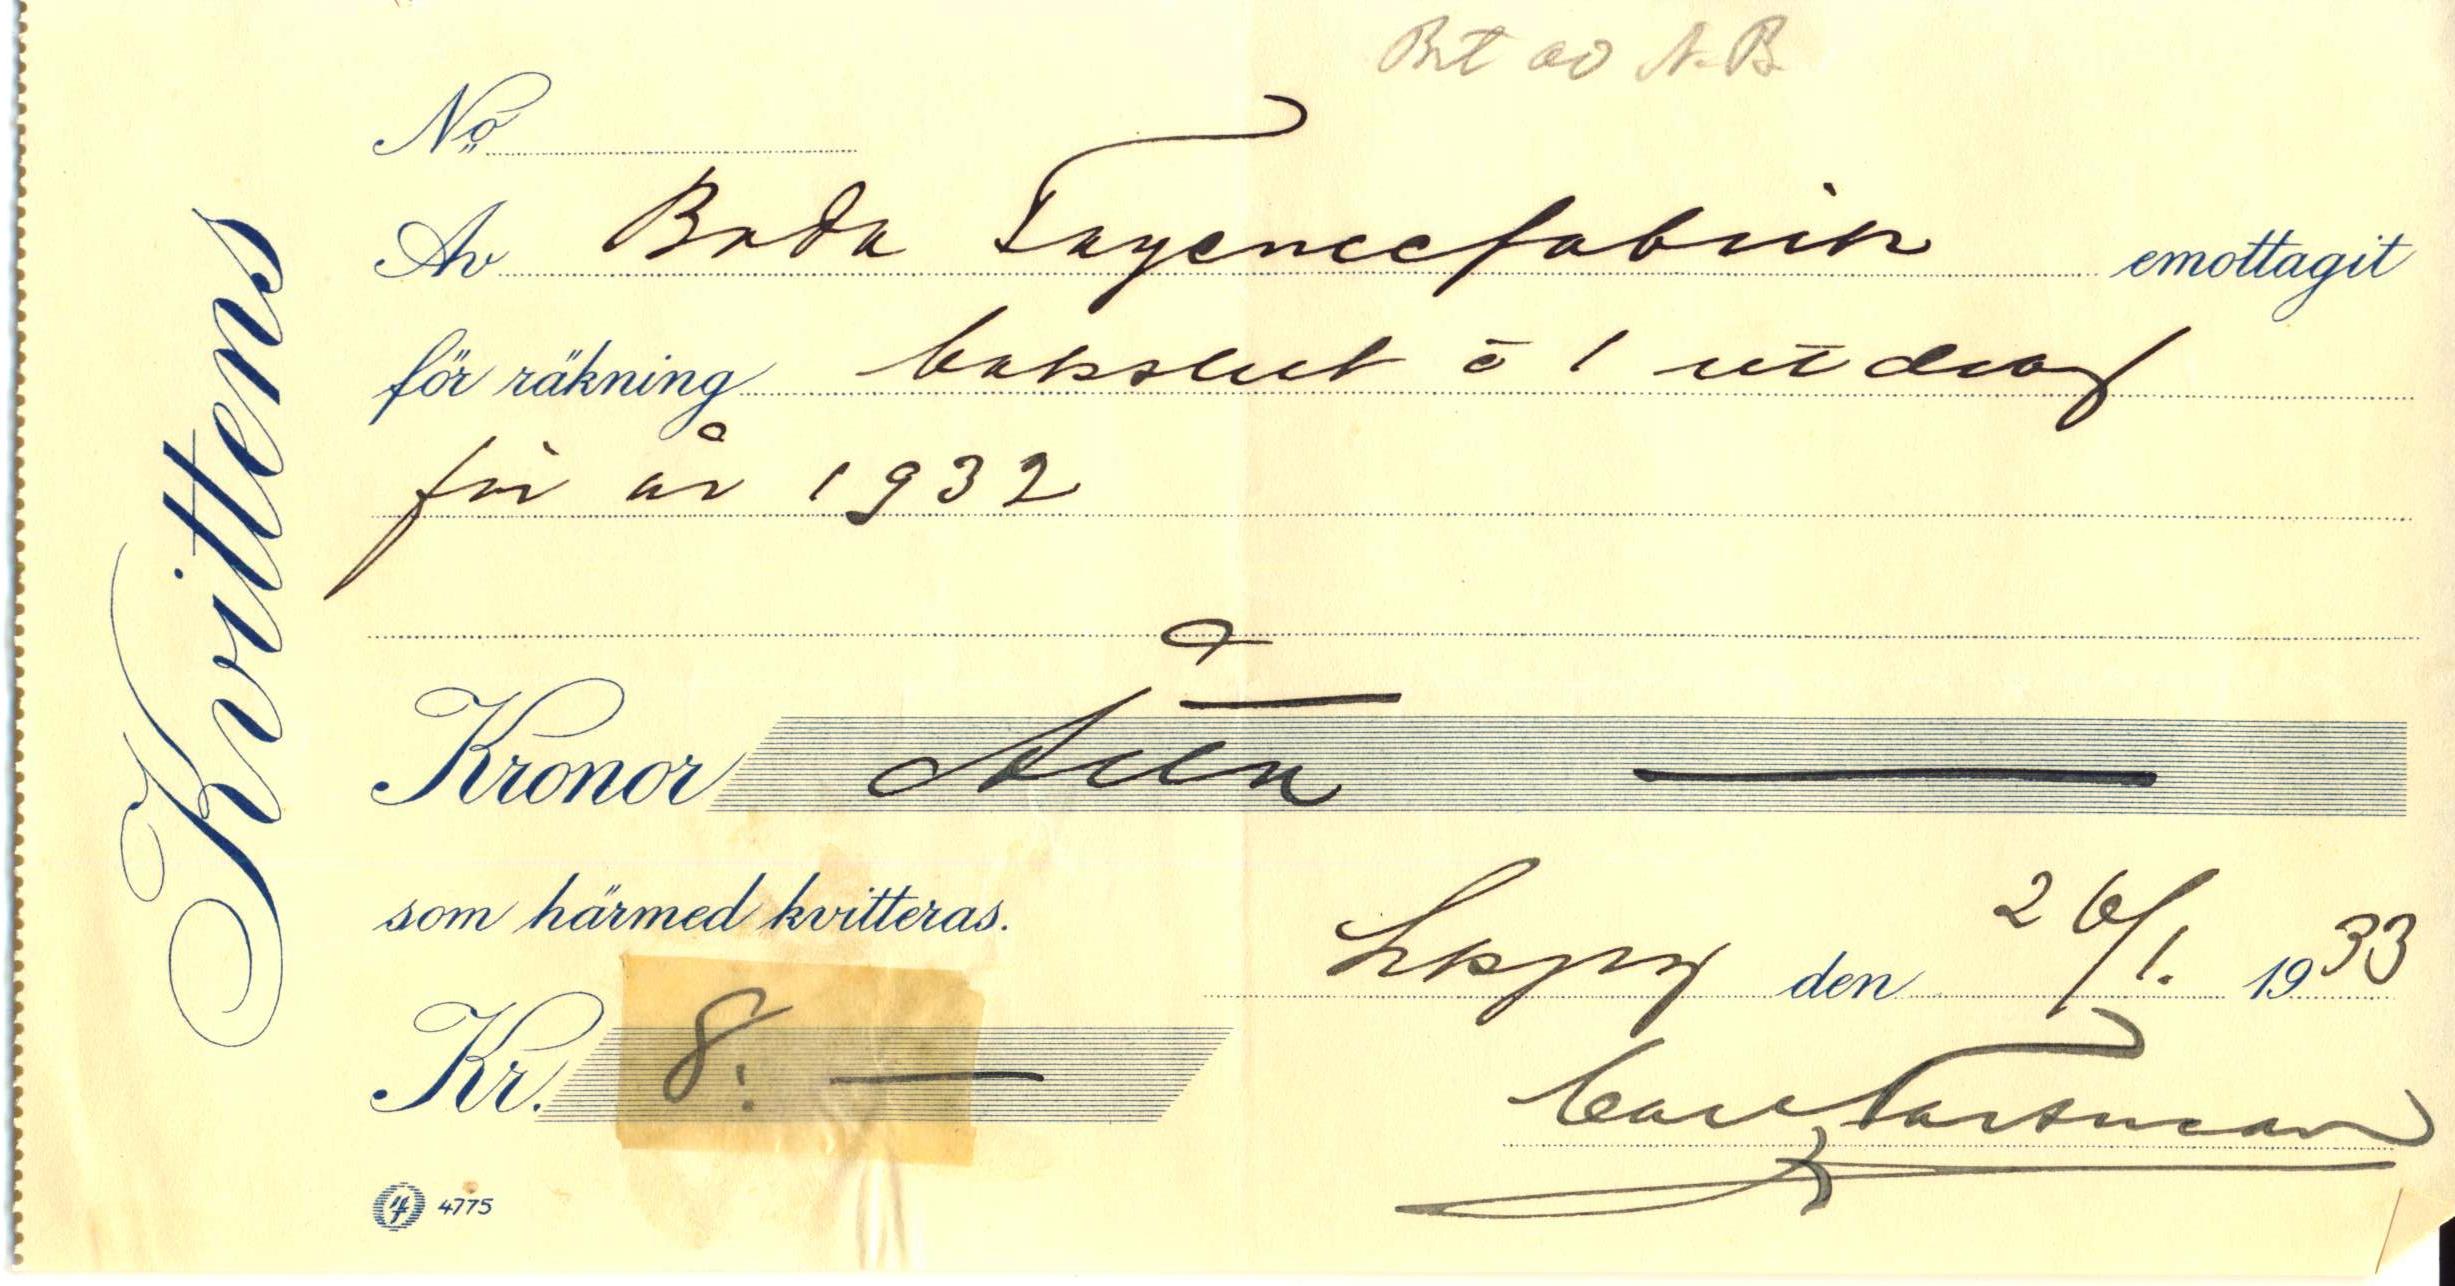 Bet av N.B.
Kvittens
No
Av Boda Fayencefabrik emottagit
för räkning bokslut o 1 utdrag
för år 1932
Kronor Åtta
som härmed kvitteras.
Lkpg den 26/1. 1933
Kr. 8:
Carl
4775